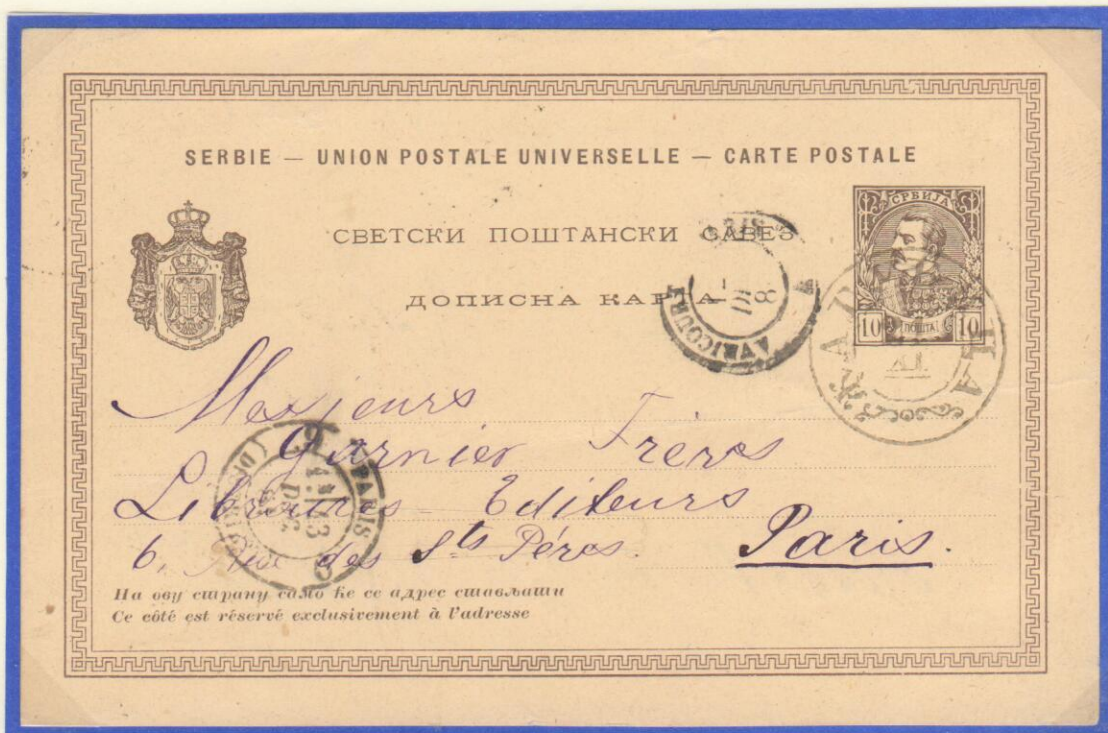 SERBIE — UNION POSTALE UNIVERSELLE — CARTE POSTALE
СРБИЈА
СВЕТСКИ ПОШТАНСКИ САВЕЗ
ДОПИСНА КАРТА
10 ПОШТА 10
AVRICOURT
Messieurs
Garnier Frères
Libraires-Editeurs
6, Rue des Sts Pères. Paris.
PARIS
DEC
На ову страну само ће се адрес стављати
Ce côté est réservé exclusivement à l'adresse